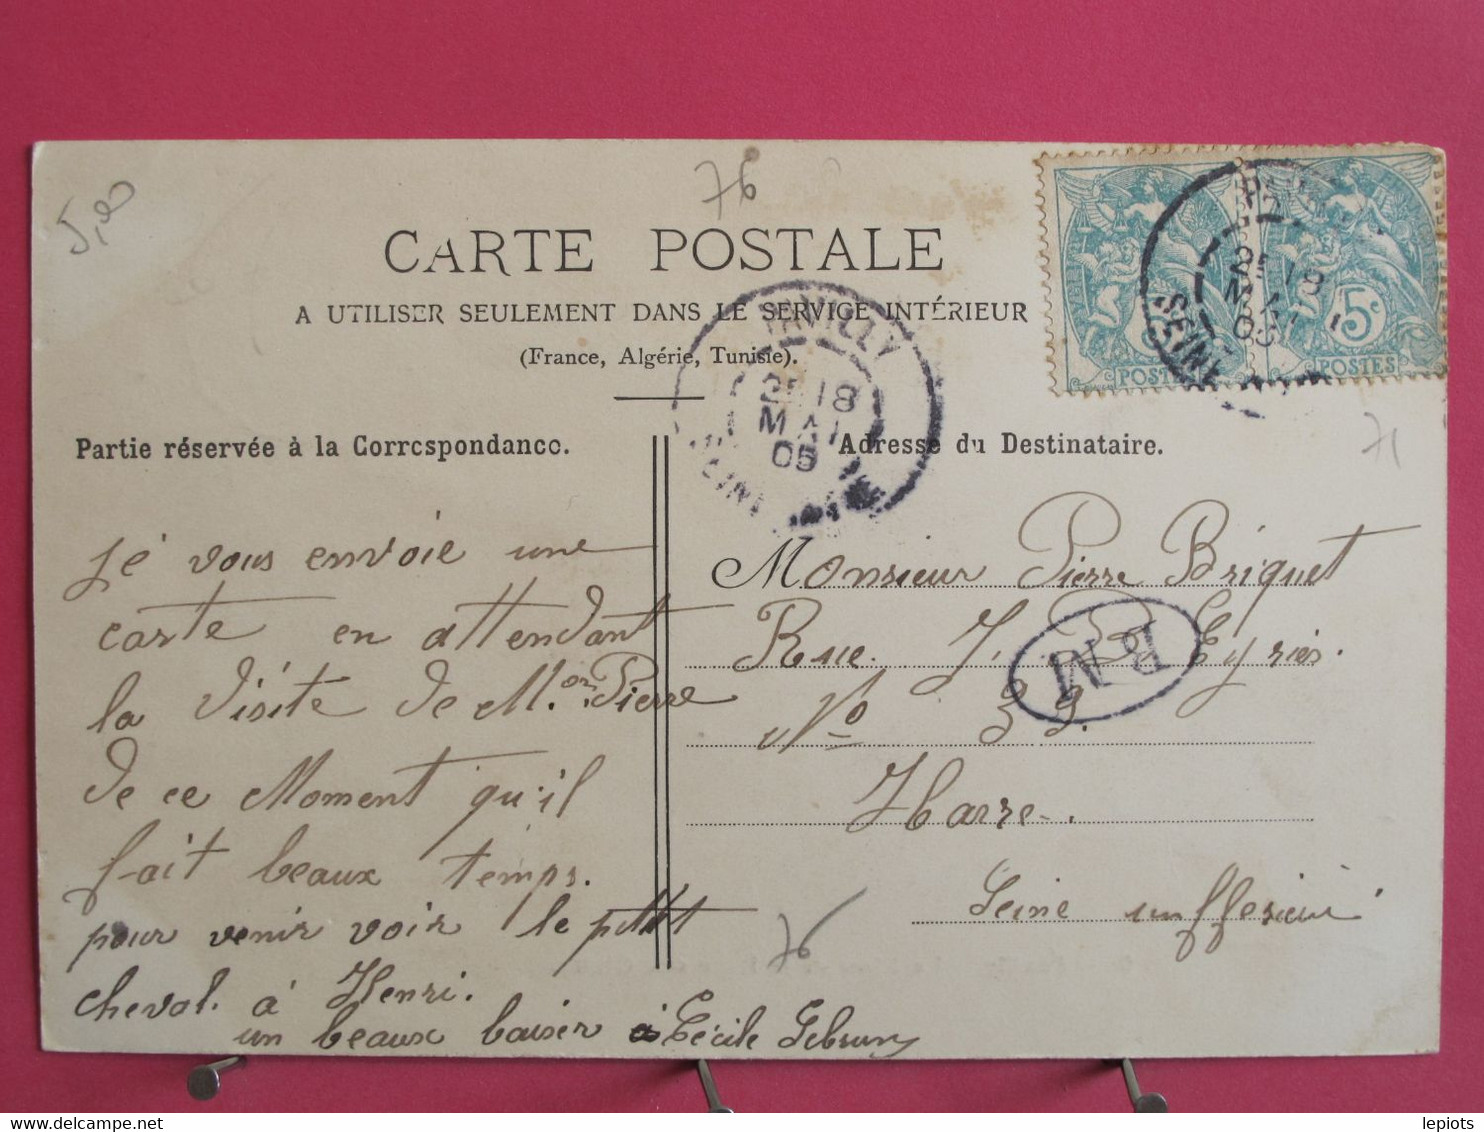 76
5,00
CARTE POSTALE
A UTILISER SEULEMENT DANS LE SERVICE INTÉRIEUR
(France, Algérie, Tunisie).
PAVILLY
2E 18
MAI
05
SEINE
2E 18
MAI
05
SEINE
5c
POSTES
POSTES
71
Partie réservée à la Correspondance.
Adresse du Destinataire.
je vous envoie une
carte en attendant
la visite de M.on Pierre
de ce Moment qu'il
fait beaux temps.
pour venir voir le petit
cheval. à Henri.
un beaux baiser à Cécile Lebrun
Monsieur Pierre Briquet
Rue. J. B Eyriès.
No 39.
Havre.
Seine unfferieur
BM
76
lepiots